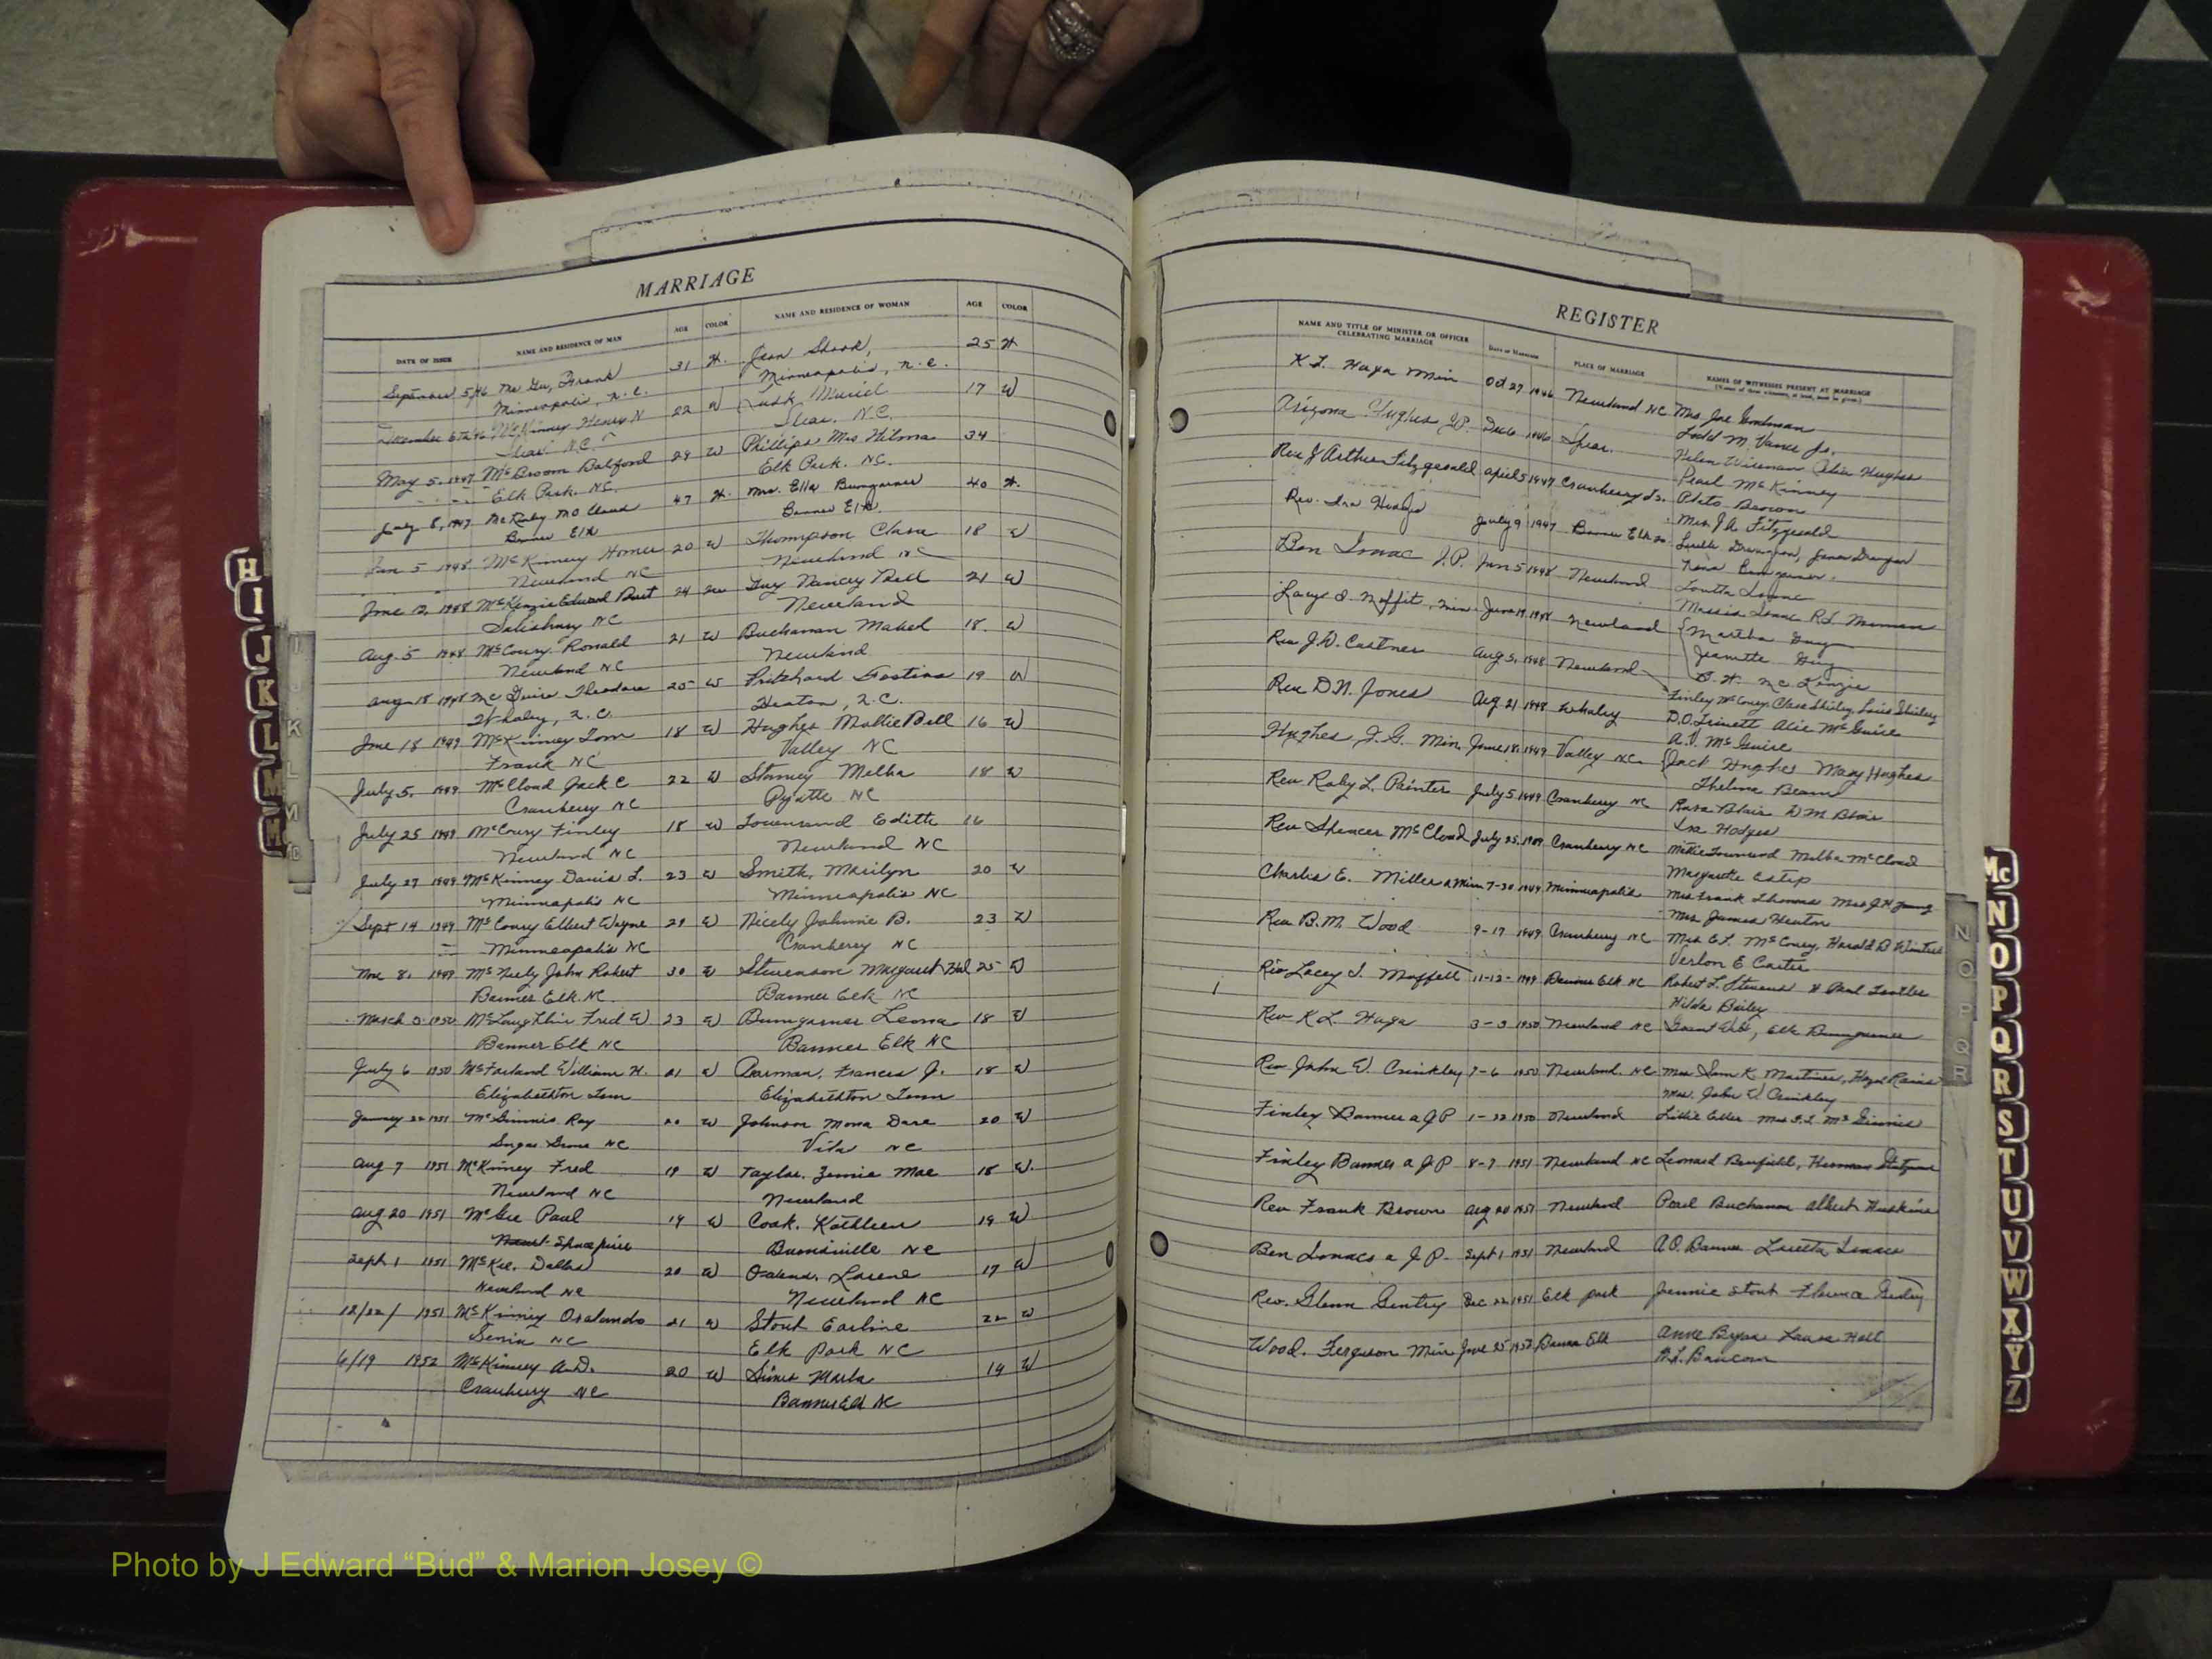 MARRIAGE
DATE OF ISSUE NAME AND RESIDENCE OF MAN AGE COLOR NAME AND RESIDENCE OF WOMAN AGE COLOR
September 5, 46 Mc Gee, Frank 31 W. Jean Shook, 25 W
Minneapolis, N.C. Minneapolis, N.C.
December 6th 46 McKinney Henry N 22 W Lusk Muriel 17 W
N.C. N.C.
May 5, 1947 McBroom Balford 29 W Phillips Mrs Wilma 34
Elk Park. NC. Elk Park. NC.
July 8, 1947 47 W. Mrs. Ella Bumgarner 40 W.
Banner Elk Banner Elk.
Jan 5 1948 McKinney Homer 20 W Thompson Clara 18 W
Newland NC Newland NC
June 12, 1948 McKenzie Edward Burt 24 W Guy Nancy Bell 21 W
Salisbury NC Newland
Aug. 5 1948 McCoury Ronald 21 W Buchanan Mabel 18. W
Newland NC Newland
Aug 18 1948 Mc Guire Theodore 25 W Pritchard 19 W
Whaley, N.C. Heaton, N.C.
June 18 1949 McKinney Tom 18 W Hughes Mollie Bell 16 W
Frank NC Valley NC
July 5, 1949 McCloud Jack C 22 W Stamey Melba 18 W
Cranberry NC Pyatte NC
July 25 1949 McCoury Finley 18 W Townsend Edith 16
Newland NC Newland NC
July 27 1949 McKinney Davis L. 23 W Smith, Marilyn 20 W
Minneapolis NC Minneapolis NC
Sept 14 1949 McCoury Elbert Wayne 21 W Nicely Johnnie B. 23 W
Minneapolis NC Cranberry NC
Nov 8. 1949 McNeely John Robert 30 W Stevenson Margaret 25 W
Banner Elk. NC. Banner Elk NC
March 1950 McLaughlin Fred W 23 W Bumgarner Leona 18 W
Banner Elk NC Banner Elk NC
July 6 1950 McFarland William H. 21 W Frances J. 18 W
Elizabethton Tenn Elizabethton Tenn
January 22 1951 McGinnis Ray 20 W Johnson Mona Dare 20 W
Sugar Grove NC Vilas NC
Aug 7 1951 McKinney Fred 19 W Taylor. Mae 18 W.
Newland NC Newland
Aug 20 1951 McGee Paul 19 W Cook. Kathleen 19 W
Spruce pine Burnsville NC
Sept 1 1951 McKee. Dallas 20 W Lorene 17 W
Newland NC Newland NC
12/22/ 1951 McKinney Oralando 21 W Stout Earline 22 W
Senia NC Elk Park NC
6/19 1952 McKinney A.D. 20 W 19 W
Cranberry NC Banner Elk NC
REGISTER
NAME AND TITLE OF MINISTER OR OFFICER CELEBRATING MARRIAGE Date of Marriage PLACE OF MARRIAGE NAMES OF WITNESSES PRESENT AT MARRIAGE
K L. Haga Min Oct 27 1946 Newland NC Mrs Joe Goodman
Todd M. Vance Jr.
Arizona Hughes J.P. Dec 6 1946 Spear. Helen Wiseman Hughes
Pearl McKinney
Rev J Arthur Fitzgerald April 5 1947 Cranberry Plato Brown
Mrs J A Fitzgerald
Rev. Ira Hodges July 9 1947 Banner Elk
Ben Isaac J.P. Jan 5 1948 Newland Loretta Isaac
Isaac R.L.
Min June 19, 1948 Newland Martha Guy
Jeanette Guy
B. W. McKenzie
Rev J.D. Castner Aug 5, 1948 Newland Finley McCoury, Shirley, Lois Shirley
Rev D.N. Jones Aug 21 1948 Whaley D.O. Trivett McGuire
A.V. McGuire
Hughes J.G. Min, June 18, 1949 Valley NC. Jack Hughes Mary Hughes
Thelma
Rev Raby L. Painter July 5 1949 Cranberry NC Blair D M Blair
Ira Hodges
Rev Spencer McCloud July 25, 1949 Cranberry NC Townsend Melba McCloud
Estep
Charles E. Miller a Min 7-30 1949 Minneapolis Mrs Frank Thomas Mrs J H Young
Mrs James Heaton
Rev B.M. Wood 9-17 1949 Cranberry NC Mrs E L. McCoury, Harold D
Verlon E Carter
Rev Lacey J. Moffett 11-12- 1949 Banner Elk NC Robert L. Stevens
Hilda Bailey
Rev K L. Haga 3-3 1950 Newland NC Bumgarner
Rev John W. Crinkley 7-6 1950 Newland. NC
Mrs. John W Crinkley
Finley Banner a J P 1-22 1950 Newland Lillie Eller McGinnis
Finley Banner a J P 8-7 1951 Newland NC Leonard Benfield,
Rev Frank Brown Aug 20 1951 Newland Pearl Buchanan Albert Huskins
Ben Isaacs a J P. Sept 1 1951 Newland A.O. Banner Loretta Isaacs
Rev. Glenn Gentry Dec 22 1951 Elk park Jennie Stout
Wood. Ferguson Min June 25 1952 Banner Elk Anne Laura Hall
H I J K L M
Mc N O P Q R S T U V W X Y Z
N O P Q R
Photo by J Edward “Bud” & Marion Josey ©